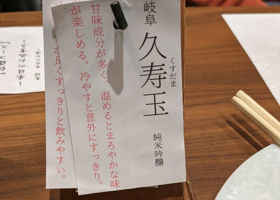 岐阜
久寿玉
くすだま
純米吟醸
甘味成分が多く、温めるとまろやかな味
が楽しめる。冷やすと意外にすっきり。
良くすっきりと飲みやすい。